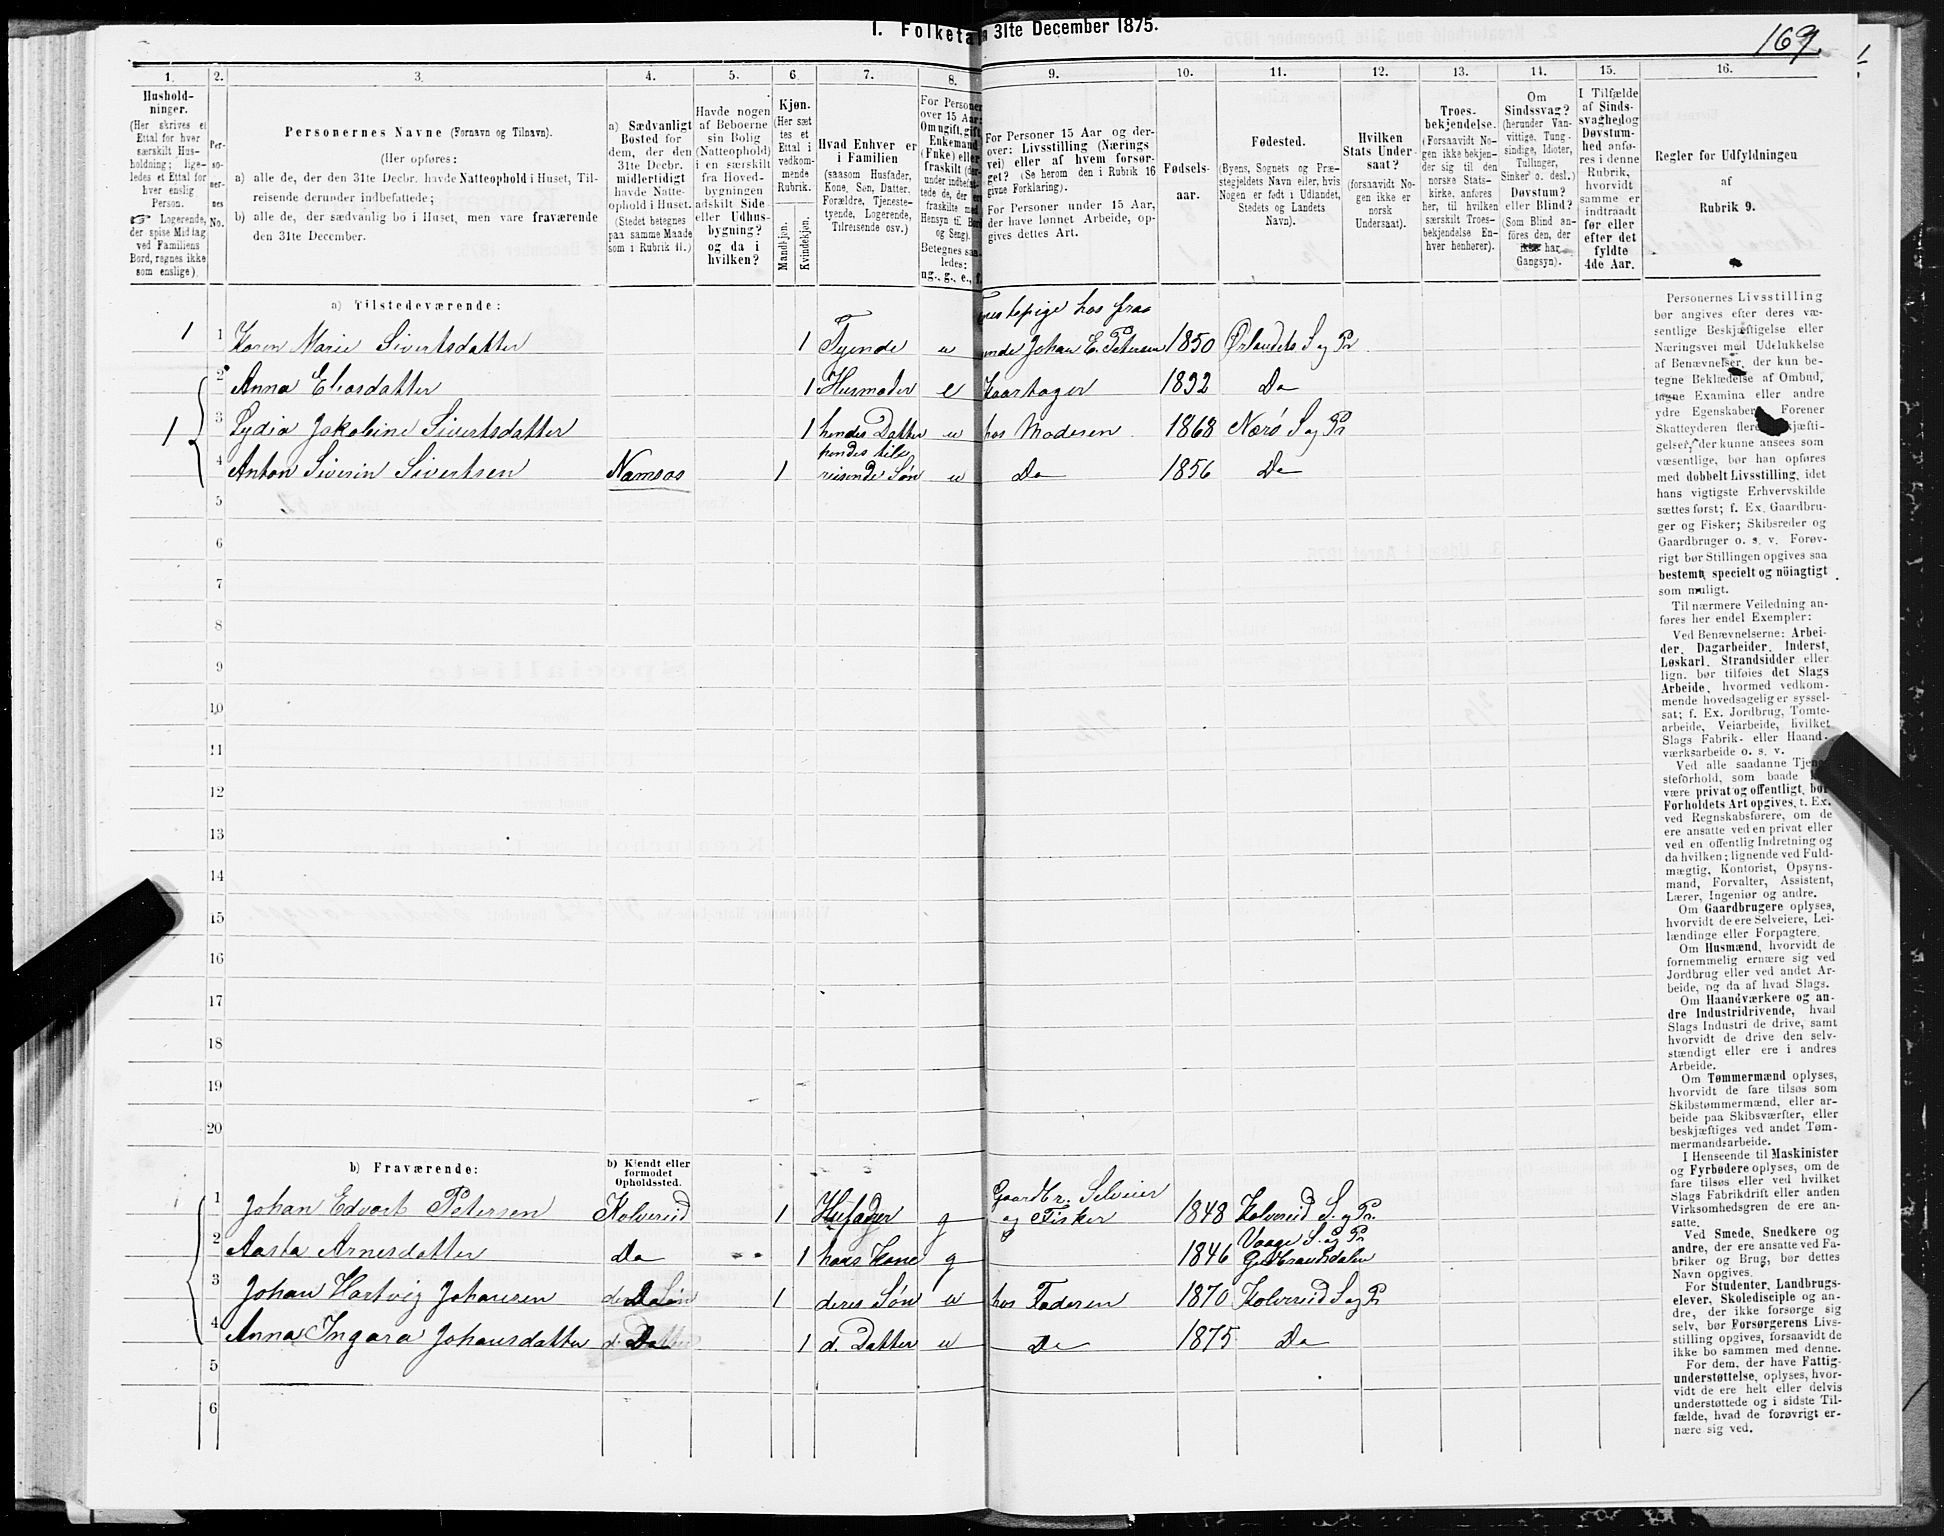 I. Folketal
n 31te December 1875.
169
1. 2. 3. 4. 5. 6. 7. 8. 9. 10. 11. 12. 13. 14. 15. 16.
Hushold-
ninger.
(Her skrives et
Ettal for hver
særskilt Hus-
holdning; lige-
ledes et Ettal for
hver enslig
Person.
☞ Logerende,
der spise Middag
ved Familiens
Bord, regnes ikke
som enslige).
Per-
so-
ner-
nes
No.
Personernes Navne (Fornavn og Tilnavn).
(Her opføres:
a) alle de, der den 31te Decbr. havde Natteophold i Huset, Til-
reisende derunder indbefattede;
b) alle de, der sædvanlig bo i Huset, men vare fraværende
den 31te December.
a) Sædvanligt
Bosted for
dem, der den
31te Decbr.
midlertidigt
havde Natte-
ophold i Huset.
(Stedet betegnes
paa samme Maade
som i Rubrik 11.)
Havde nogen
af Beboerne
sin Bolig
(Natteophold)
i en særskilt
fra Hoved-
bygningen
adskilt Side-
eller Udhus-
bygning?
og da i
hvilken?
Kjøn.
(Her sæt-
tes et
Ettal i
vedkom-
mende
Rubrik.
Mandkjøn.
Kvindekjøn.
Hvad Enhver er
i Familien
(saasom Husfader,
Kone, Søn, Datter,
Forældre, Tjeneste-
tyende, Logerende,
Tilreisende osv.)
For Personer
over 15 Aar:
Om ugift, gift,
Enkemand
(Enke) eller
fraskilt
Betegnes saa-
ledes:
ug., g., e., f.
For Personer 15 Aar og der-
over: Livsstilling (Nærings
vei) eller af hvem forsør-
get? (Se herom den i Rubrik 16
givne Forklaring).
For Personer under 15 Aar,
der have lønnet Arbeide, op-
gives dettes Art.
Fødsels-
aar.
Fødested.
(Byens, Sognets og Præ-
stegjeldets Navn eller, hvis
Nogen er født i Udlandet,
Stedets og Landets
Navn).
Hvilken
Stats Under-
saat?
(forsaavidt No-
gen ikke er
norsk
Undersaat).
Troes-
bekjendelse.
(Forsaavidt No-
gen ikke bekjen-
der sig til den
norske Stats-
kirke, anføres
her, til hvilken
særskilt Troes-
bekjendelse En-
hver henhører).
Om
Sindssvag?
(herunder Van-
vittige, Tung-
sindige, Idioter,
Tullinger,
Sinker o. desl.)
Døvstum?
eller Blind?
(Som Blind an-
føres den, der
ikke har
Gangsyn).
I Tilfælde
af Sinds-
svaghed og
Døvstum-
hed anfø-
res i denne
Rubrik,
hvorvidt
samme er
indtraadt
før eller
efter det
fyldte
4de Aar.
Regler for Udfyldningen
af
Rubrik 9.
a) Tilstedeværende:
enestepige hos fra
1 1 Karen Marie Sivertsdatter 1 Tyende u ende Johan E. Petersen 1850 Ørlandets S og Pr
2 Anna Eliasdatter 1 Husmoder e 1832 Do
1 3 Lydia Jakobine Sivertsdatter 1 hendes Datter u hos Moderen 1868 Nærø S og Pr
hendes til
4 Anton Siverin Sivertsen Namsos 1 reisende Søn u Do 1856 Do
5
6
7
8
9
10
11
12
13
14
15
16
17
18
19
20
b) Fraværende:
b) Kjendt eller
formodet
Opholdssted.
Gaardbr. Selveier
1 Johan Edvart Petersen Kolvereid 1 Husfader g og Fisker 1848 Kolvereid S. og Pr.
Vaage S. og Pr
2 Aasta Arnesdatter Do 1 hans Kone g 1846 Gudbrandsdalen
3 Johan Hartvig Johansen Do 1 deres Søn u hos Faderen 1870 Kolvereid S og Pr
4 Anna Ingara Johansdatter Do 1 d. Datter u Do 1875 Do
5
6
Personernes Livsstilling
bør angives efter deres væ-
sentlige Beskjæftigelse eller
Næringsvei med Udelukkelse
af Benævnelser, der kun be-
tegne Beklædelse af Ombud,
tagne Examina eller andre
ydre Egenskaber. Forener
Skatteyderen flere Beskjæfti-
gelser, der kunne ansees som
væsentlige, bør han opføres
med dobbelt Livsstilling, idet
hans vigtigste Erhvervskilde
sættes først; f. Ex. Gaardbru-
ger og Fisker; Skibsreder og
Gaardbruger o. s. v. Forøv-
rigt bør Stillingen opgives saa
bestemt, specielt og nöiagtigt
som muligt.
Til nærmere Veiledning an-
føres her endel Exempler:
Ved Benævnelserne: Arbei-
der, Dagarbeider, Inderst,
Løskarl, Strandsidder eller
lign. bør tilføies det Slags
Arbeide, hvormed vedkom-
mende hovedsagelig er syssel-
sat; f. Ex. Jordbrug, Tomte-
arbeide, Veiarbeide, hvilket
Slags Fabrik- eller Haand-
værksarbeide o. s. v.
Ved alle saadanne Tjene-
steforhold, som baade kan
være privat og offentligt, bør
Forholdets Art opgives, t. Ex.
ved Regnskabsførere, om de
ere ansatte ved en privat eller
ved en offentlig Indretning og
da hvilken; lignende ved Fuld-
mægtig, Kontorist, Opsyns-
mand, Forvalter, Assistent,
Lærer, Ingeniør og andre.
Om Gaardbrugere oplyses,
hvorvidt de ere Selveiere, Lei-
lændinge eller Forpagtere.
Om Husmænd, hvorvidt de
fornemmelig ernære sig ved
Jordbrug eller ved andet Ar-
beide, og da af hvad Slags.
Om Haandværkere og an-
dre Industridrivende, hvad
Slags Industri de drive, samt
hvorvidt de drive den selv-
stændigt eller ere i andres
Arbeide.
Om Tømmermænd oplyses,
hvorvidt de fare tilsøs som
Skibstømmermænd, eller ar-
beide paa Skibsværfter, eller
beskjæftiges ved andet Tøm-
mermandsarbeide.
I Henseende til Maskinister
og Fyrbødere oplyses, om de
fare tilsøs eller ved hvilket
Slags Fabrikdrift eller anden
Virksomhedsgren de ere an-
satte.
Ved Smede, Snedkere og
andre, der ere ansatte ved Fa-
briker og Brug, bør dettes
Navn opgives.
For Studenter, Landbrugs-
elever, Skoledisciple og an-
dre, der ikke forsørge sig
selv, bør Forsørgerens Livs-
stilling opgives, forsaavidt de
ikke bo sammen med denne.
For dem, der have Fattig-
understøttelse, oplyses, hvor-
vidt de ere helt eller delvis
understøttede og i sidste Til-
fælde, hvad de forøvrigt er-
nære sig ved.